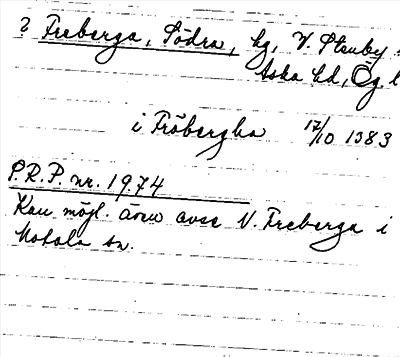 ? Freberga, Södra, hg, V. Stenby s
Aska hd, Ög. l
i Fröbergha 17/10 1383
S.R.P. nr. 1974
Kan möjl. även avse N. Freberga i
Motala sn.